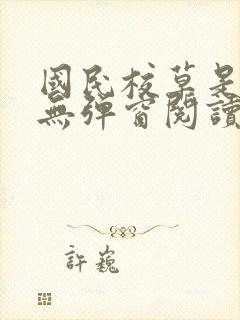 國民校草是
無彈窗閱讀
許巍